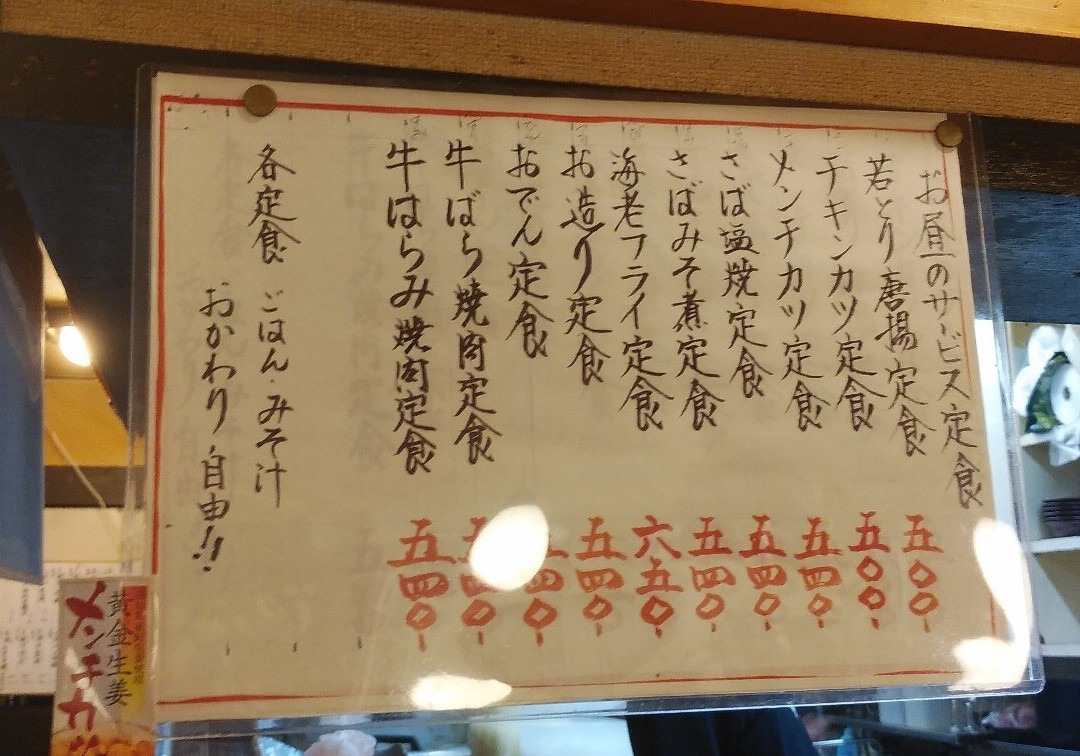 お昼のサービス定食
若とり唐揚定食 五〇〇
チキンカツ定食 五〇〇
メンチカツ定食 五四〇
さば塩焼定食 五四〇
さばみそ煮定食 五四〇
海老フライ定食 六五〇
お造り定食 五四〇
おでん定食 四〇
牛ばら焼肉定食 四〇
牛はらみ焼肉定食 五四〇
各定食 ごはん・みそ汁
おかわり自由!!
黄金生姜
メンチカツ